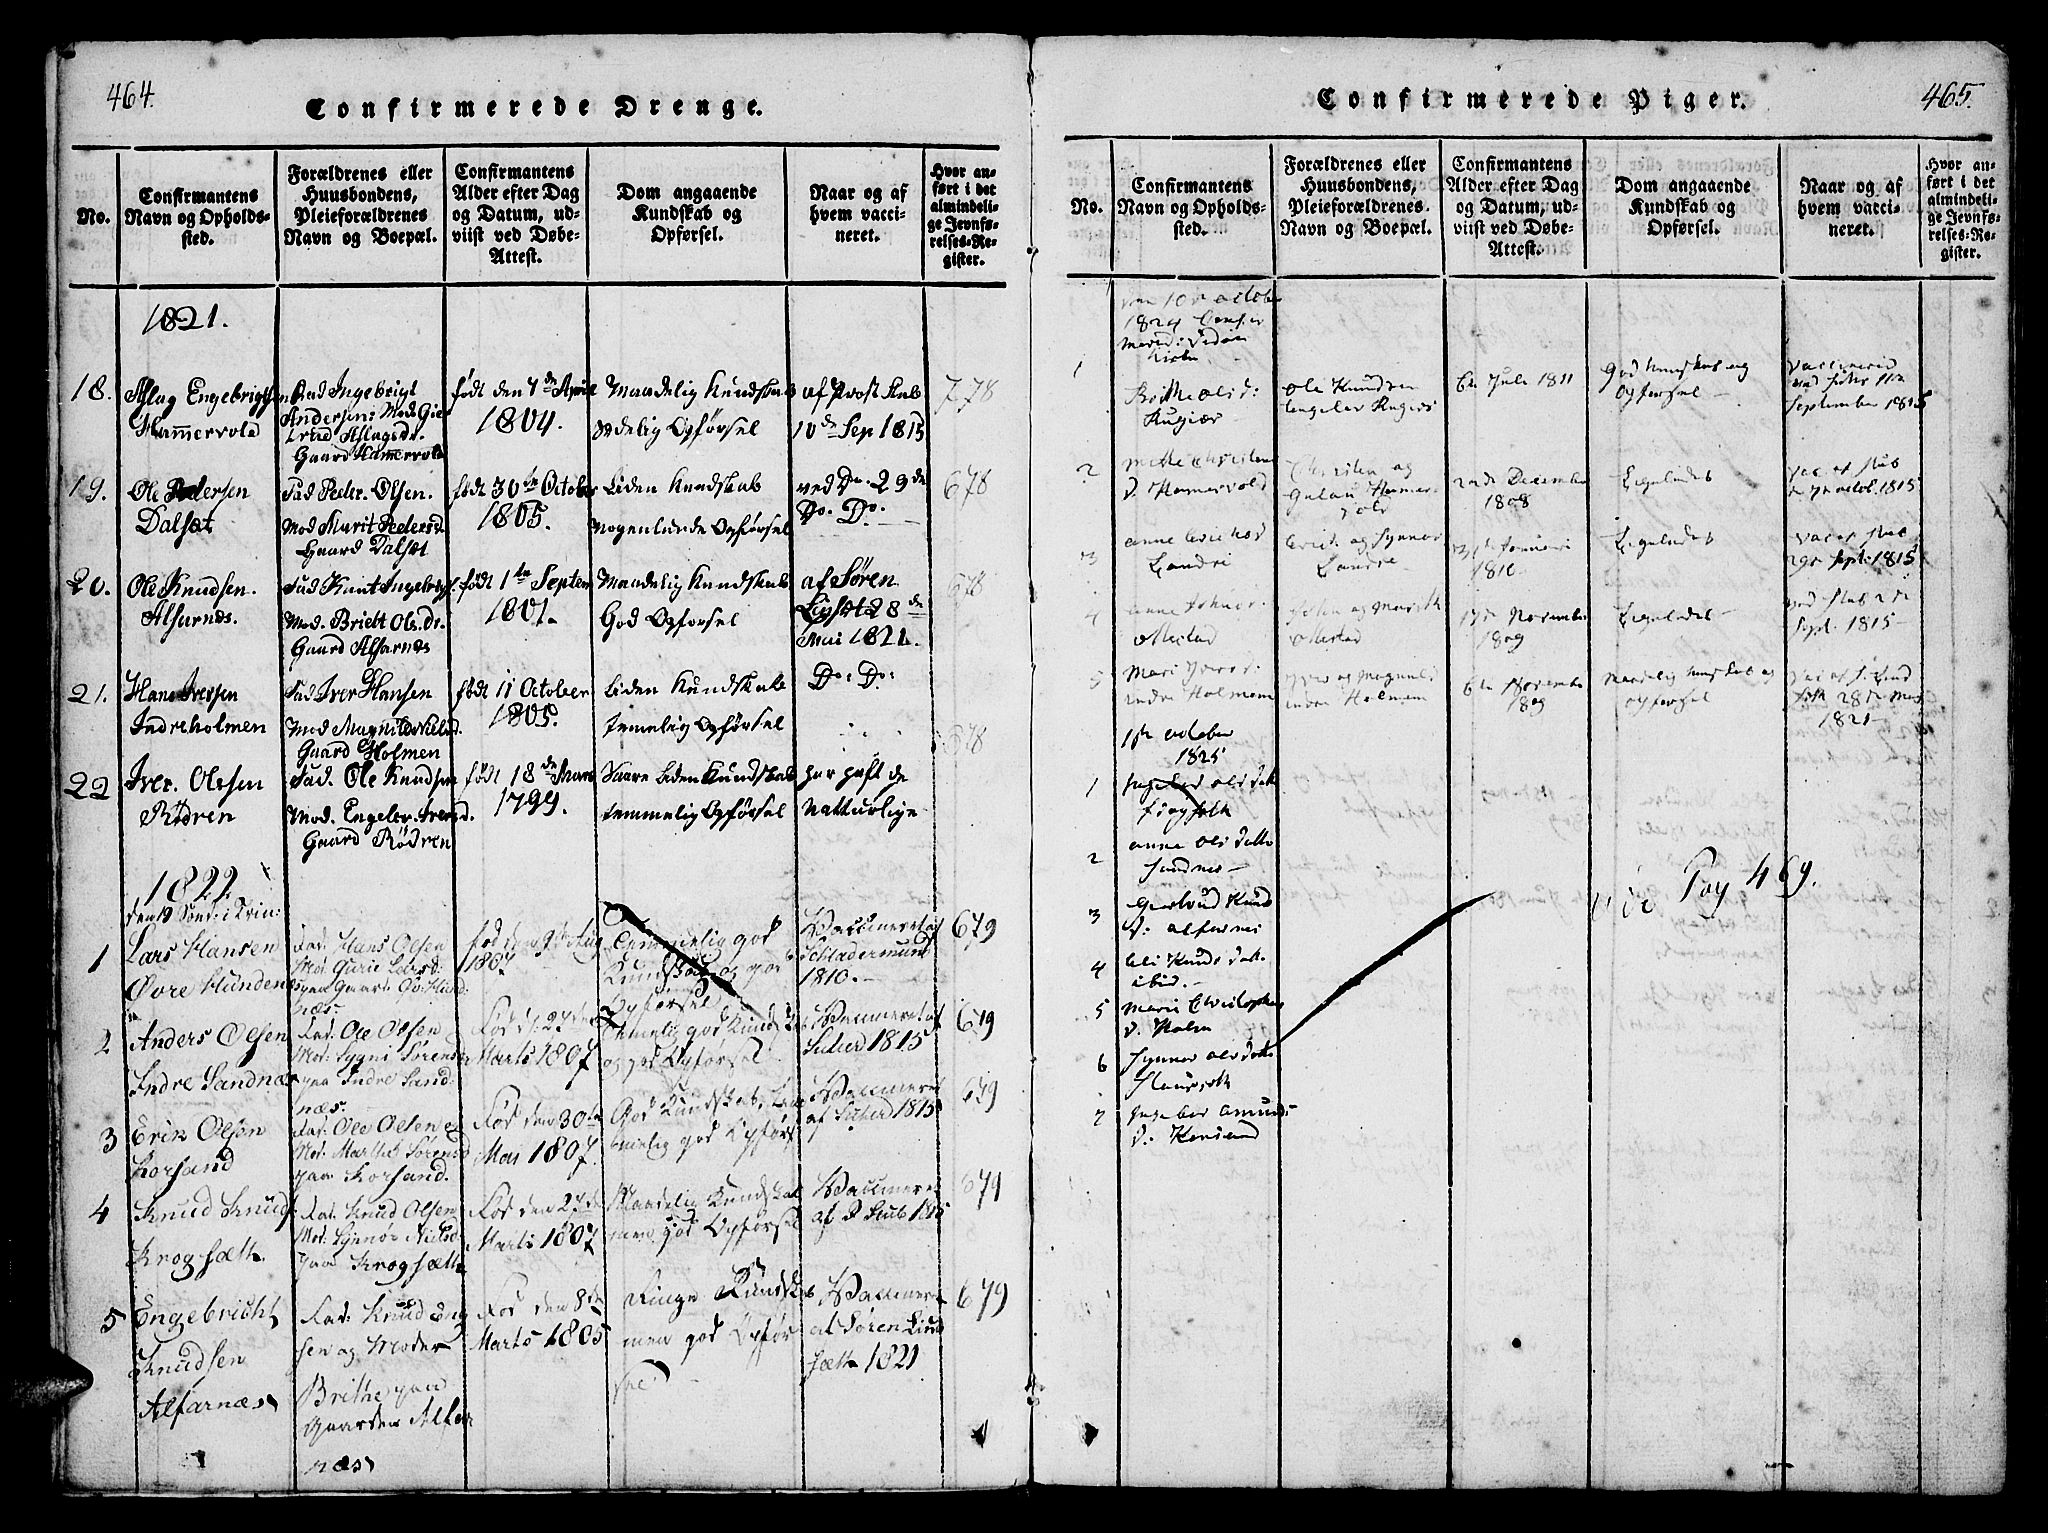 464.
Confirmerede Drenge.
No.
Confirmantens
Navn og Opholds-
sted.
Forældrenes eller
Huusbondens,
Pleieforældrenes
Navn og Boepæl.
Confirmantens
Alder efter Dag
og Datum, ud-
viist ved Døbe-
Attest.
Dom angaaende
Kundskab og
Opførsel.
Naar og af
hvem vacci-
neret.
Hvor an-
ført i det
almindeli-
ge Jevnfø-
relses-Re-
gister.
1821.
18.
Aslag Engebrigtsen
Hammervold
Fad Ingebrigt
Andersen: Mod Gie
trud Aslagsdr.
Gaard Hammervold
født den 7de April
1804.
Maadelig Kundskab
Sædelig Opførsel
af Prost Stub
10de Sep 1815
778
19.
Ole Pedersen
Dalsæt
Fad Peder Olsen.
Mod Marit Pedersd.
Gaard Dalsæt
født 30te October
1805.
Liden Kundskab
Nogenlunde Opførsel
ved Do. 29de
Do. Do.
678
20.
Ole Knudsen.
Alfarnæs.
Fad Knut Ingebrigts.
Mod. Briett Ols.dr.
Gaard Alfarnæs
født 1te Septem
1801.
Maadelig Kundskab
God Opførsel
af Søren
28de
Mai 1821.
678
21.
Hans Iversen
Indreholmen
Fad Iver Hansen
Mod Magnild Nielsd.
Gaard Holmen
født 11 October
1805.
Liden Kundskab
temmelig Opførsel
Do: Do:
678
22
Iver. Olesen
Rödren
Fad. Ole Knudsen
Mod. Engeler. Iversd.
Gaard Rödren
født 18de Mars
1799.
Saare Liden Kundskab
temmelig Opførsel
har haft de
Natturlige
1822
den 19 Sönd: i Trin:
1
Lars Hansen
Øvre Hundenes
Fad: Hans Olsen
Mo: Gurie Larsd:
paa Gaard: Øv: Hund:
næs.
Fød den 9de Aug
1807
Temmelig god
Kundskab og god
Opførsel
Vaccineret af
Schladermund
1810.
679
2
Anders Olsen
Indre Sandnæs
Fad: Ole Olsen
Mod: Sygni Sörensd
paa Indre Sand:
næs.
Fød d. 27de
Marts 1807
temelig god Kundskab
og god Opførsel
Vaccineret af
1815
679
3
Erik Olsen
Korsand
Fad: Ole Olsen og
Mod: Marthe Sörensd
paa Korsand.
Fød den 30te
Mai 1807.
God Kundskab, tem
melig god Opførs.
Vaccineret
af 1815
679
4
Knud Knuds.
Krogsæth.
Fad: Knud Olsen
Mod: Synnøv Nielsd
paa Krogsæth.
Fød den 27de
Marts 1807
Maadelig Kundskab
men god Opførsel
Vaccineret
af P Stub 1815
679
5
Engebricht
Knudsen
Alfarnæs
Fad: Knud Eng
sen og Moder
Brithe paa
Gaarden Alfar
næs
Fød den 8de
Marts 1805
Ringe Kundskab
men god Opfør
sel
Vaccineret
af Søren Lind
sæth 1821
679
465.
Confirmerede Piger.
No.
Confirmantens
Navn og Opholds-
sted.
Forældrenes eller
Huusbondens,
Pleieforældrenes.
Navn og Boepæl.
Confirmantens
Alder efter Dag
og Datum, ud-
viist ved Døbe-
Attest.
Dom angaaende
Kundskab og
Opførsel.
Naar og af
hvem vacci-
neret.
Hvor an-
ført i det
almindeli-
ge Jevnfø-
relses-Re-
gister.
den 10de october
1824 Confir
mered: Vedøe
Kirke
1
Brithe olsd:
Ole Knudsen
6te Juli 1811
God kundskab og
opførsel
Vaccinered
11te
September 1815
2
Mette Christens
d. Hamervold
Christen og
Hamer-
vold
2nde December
1808
Ligeledes
vac af Stub
d 7de octob. 1815
3
anne Erichsd
Landre
Erich og Synnøv
Landre
Januari
1810
Ligeledes
vac af Stub
29de sept: 1815
4
anne Johnsd.
Mestad
John og Marith
Mestad
17de November
1809
Ligeledes
Stub
sept. 1815
5
Mari Iversd:
indre Holmem
Iver og Magnild
indre Holmem
6te November
1809
Maadelig kundskab og
opførsel
vac af S: Lind
seth 28de Mai
1821
1ste october
1825
1
Ingebor olsdatt
2
anne olsdatte
Sandnes
3
Giertrud Knud
d: alfarnes
4
Eli Knuds datt.
ibid.
5
Marie Christophers
d. Holm
6
Synnev olsdatte
7
Ingebor amund
d.
vide Pag 469.